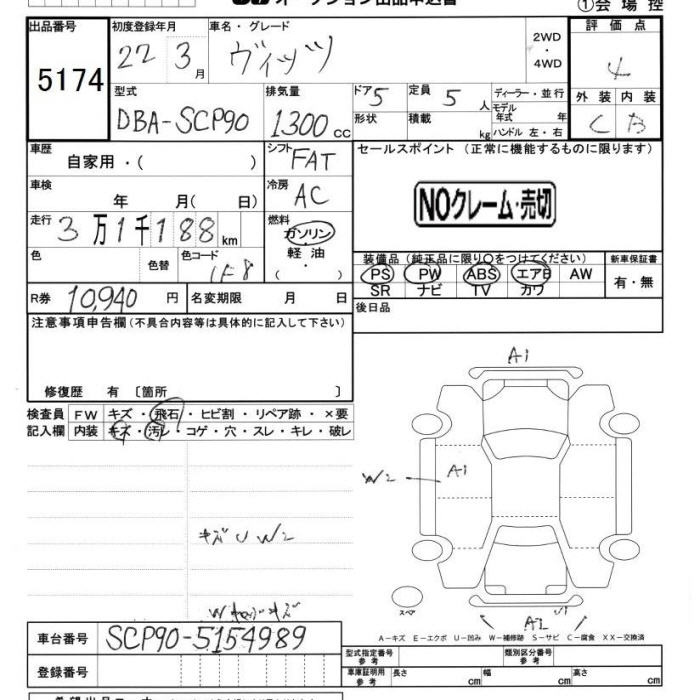 オークション出品申込書
①会場控
出品番号 初度登録年月 車名・グレード 2WD・4WD 評価点
5174 22 3月 ヴィッツ 4
型式 排気量 ドア 定員 ディーラー・並行 外装 内装
DBA-SCP90 1300cc 5 5人 C B
形状 積載 kg モデル年式 年 ハンドル 左・右
車歴 自家用・( ) シフト FAT セールスポイント (正常に機能するものに限ります)
車検 年 月( 日) 冷房 AC
NOクレーム・売切
走行 3万1千188km 燃料 ガソリン・軽油・( )
色 色替 色コード 1F8
装備品 (純正品に限り○をつけてください) 新車保証書
PS PW ABS エアB AW 有・無
SR ナビ TV カワ
R券 10,940円 名変期限 月 日 後日品
注意事項申告欄 (不具合内容等は具体的に記入して下さい)
修復歴 有 〔箇所 〕
検査員記入欄 FW キズ・飛石・ヒビ割・リペア跡・×要
内装 キズ・汚レ・コゲ・穴・スレ・キレ・破レ
A1
W2 A1
キズU W2
スペア
A2 U1
A-キズ E-エクボ U-凹み W-補修跡 S-サビ C-腐食 XX-交換済
車台番号 SCP90-5154989
型式指定番号 参考 類別区分番号 参考
登録番号 車庫証明 参考 長さ cm 幅 cm 高さ cm